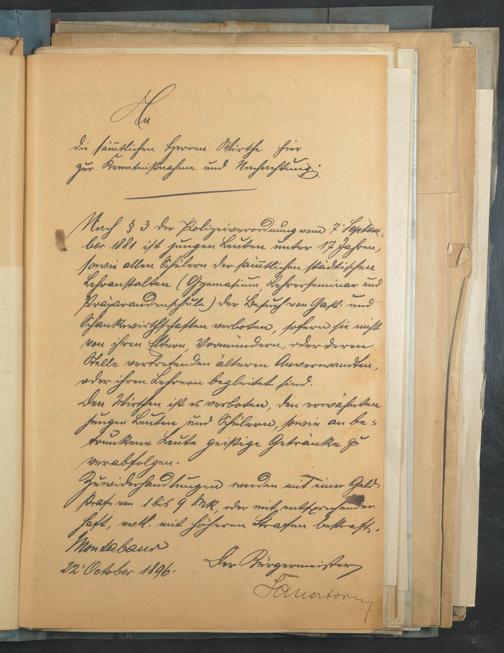 An
die sämtlichen Herren Wirthe hier
zur Kenntnißnahme und Nachachtung.
Nach § 3 der Polizeiverordnung vom 7 Septem-
ber 1881 ist jungen Leuten unter 17 Jahren,
sowie allen Schülern der sämtlichen städtischen
Lehranstalten (Gymnasium, Lehrerseminar und
Präparandenschule) der Besuch von Gast- und
Schankwirthschaften verboten, sofern sie nicht
von ihren Eltern, Vormündern, oder deren
Stelle vertretenden älteren Anverwandten,
oder ihren Lehrern begleitet sind.
Den Wirthen ist es verboten, den erwähnten
jungen Leuten und Schülern, sowie an be-
trunkene Leute geistige Getränke zu
verabfolgen.
Zuwiderhandlungen werden mit einer Geld-
strafe von 1 bis 9 Mk, oder mit entsprechender
Haft, evtl. mit höheren Strafen bestraft.
Montabaur
22 October 1896.
Der Bürgermeister